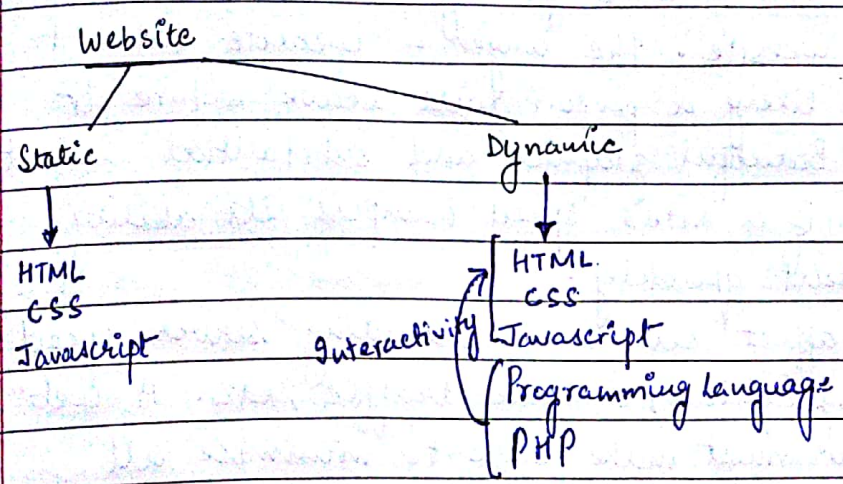 Website
Static
Dynamic
HTML
CSS
Javascript
HTML.
CSS
Javascript
Interactivity
Programming Language
PHP